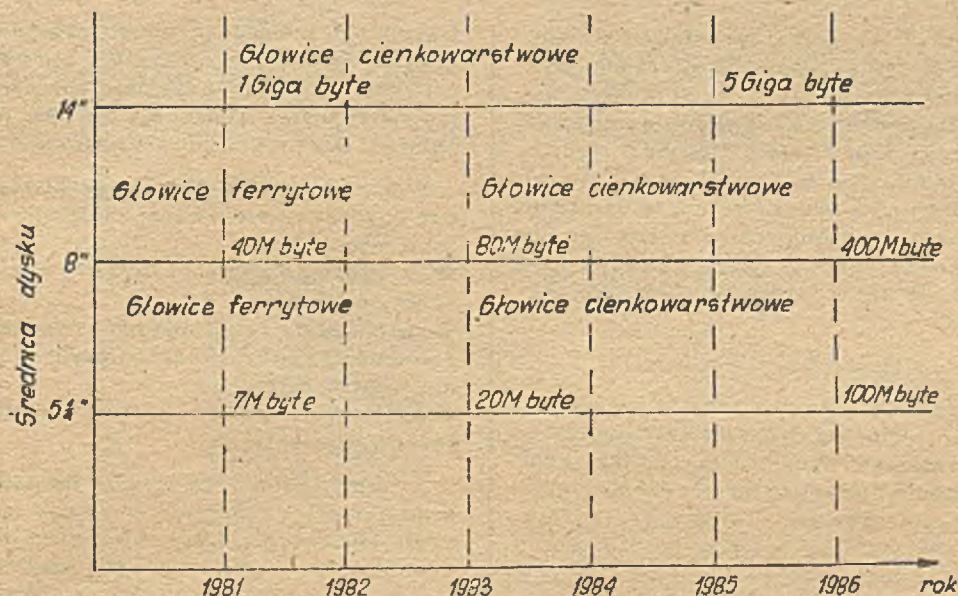 Głowice cienkowarstwowe
1Giga byte
5Giga byte
14"
Głowice ferrytowe
Głowice cienkowarstwowe
40M byte
80M byte
400M byte
8"
Głowice ferrytowe
Głowice cienkowarstwowe
7M byte
20M byte
100M byte
5¼"
Średnica dysku
1981 1982 1983 1984 1985 1986 rok